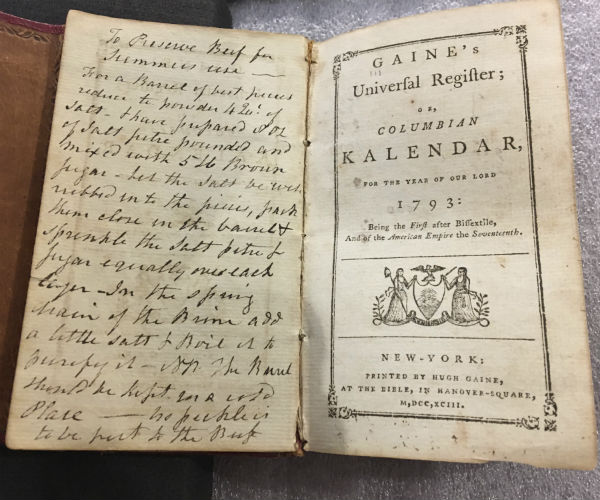 To Preserve Beef for
Summer use —
For a Barrel of best pieces
reduce to powder 4 Qts. of
Salt - I have prepared 8 oz
of Salt petre pounded and
mixed with 5 lb Brown
Sugar - let the Salt be well
rubbed in to the pieces, pack
them close in the barrel &
Sprinkle the Salt petre &
Sugar equally over each
layer - In the Spring
drain of the Brine add
a little Salt & Boil it to
purify it - NB The Barrel
should be kept in a cold
Place — no pickle is
to be put to the Beef
GAINE's
Univerſal Regiſter;
OR,
COLUMBIAN
KALENDAR,
FOR THE YEAR OF OUR LORD
1793:
Being the Firſt after Biſſextile,
And of the American Empire the Seventeenth.
NEW-YORK:
PRINTED BY HUGH GAINE,
AT THE BIBLE, IN HANOVER-SQUARE,
M,DCC,XCIII.